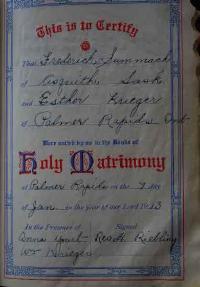 This is to Certify
That Fredrick Summach
of Asquith Sask
and Esther Krieger
of Palmer Rapids Ont
Were united by me in the Bonds of
Holy Matrimony
at Palmer Rapids on the 7 day
of Jan. in the year of our Lord 19
In the Presence of Signed
Anna
Wm Krieger